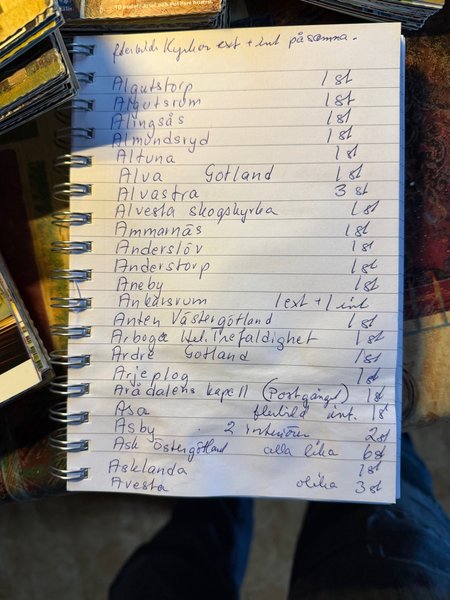 flerbilds Kyrkor ext + int på samma.
Algutstorp 1 st
Algutsrum 1 st
Alingsås 1 st
Almundsryd 1 st
Altuna 1 st
Alva Gotland 1 st
Alvastra 3 st
Alvesta skogskyrka 1 st
Ammarnäs 1 st
Anderslöv 1 st
Anderstorp 1 st
Aneby 1 st
Ankarsrum 1 ext + 1 int
Anten Västergötland 1 st
Arboga Hel. Trefaldighet 1 st
Ardre Gotland 1 st
Arjeplog 1 st
Arådalens kapell (Portgånge) 1 st
Asa flerbild int. 1 st
Asby 2 interiörer 2 st
Ask Östergötland alla lika 6 st
Asklanda 1 st
Avesta olika 3 st